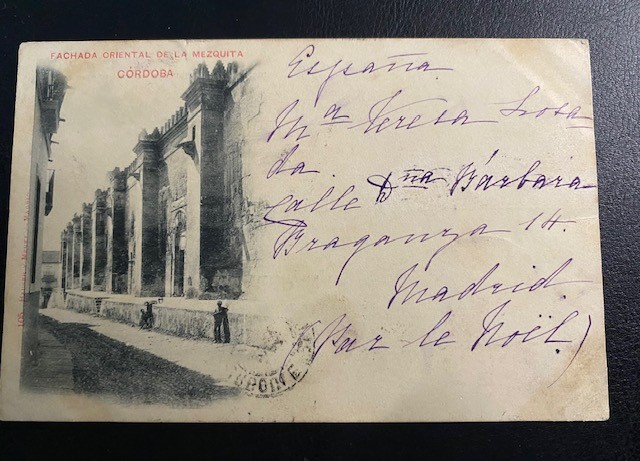 FACHADA ORIENTAL DE LA MEZQUITA
CÓRDOBA
España
Mª Teresa Losa
da
Calle Dña Bárbara
Braganza 14.
Madrid
(Par le Noël)